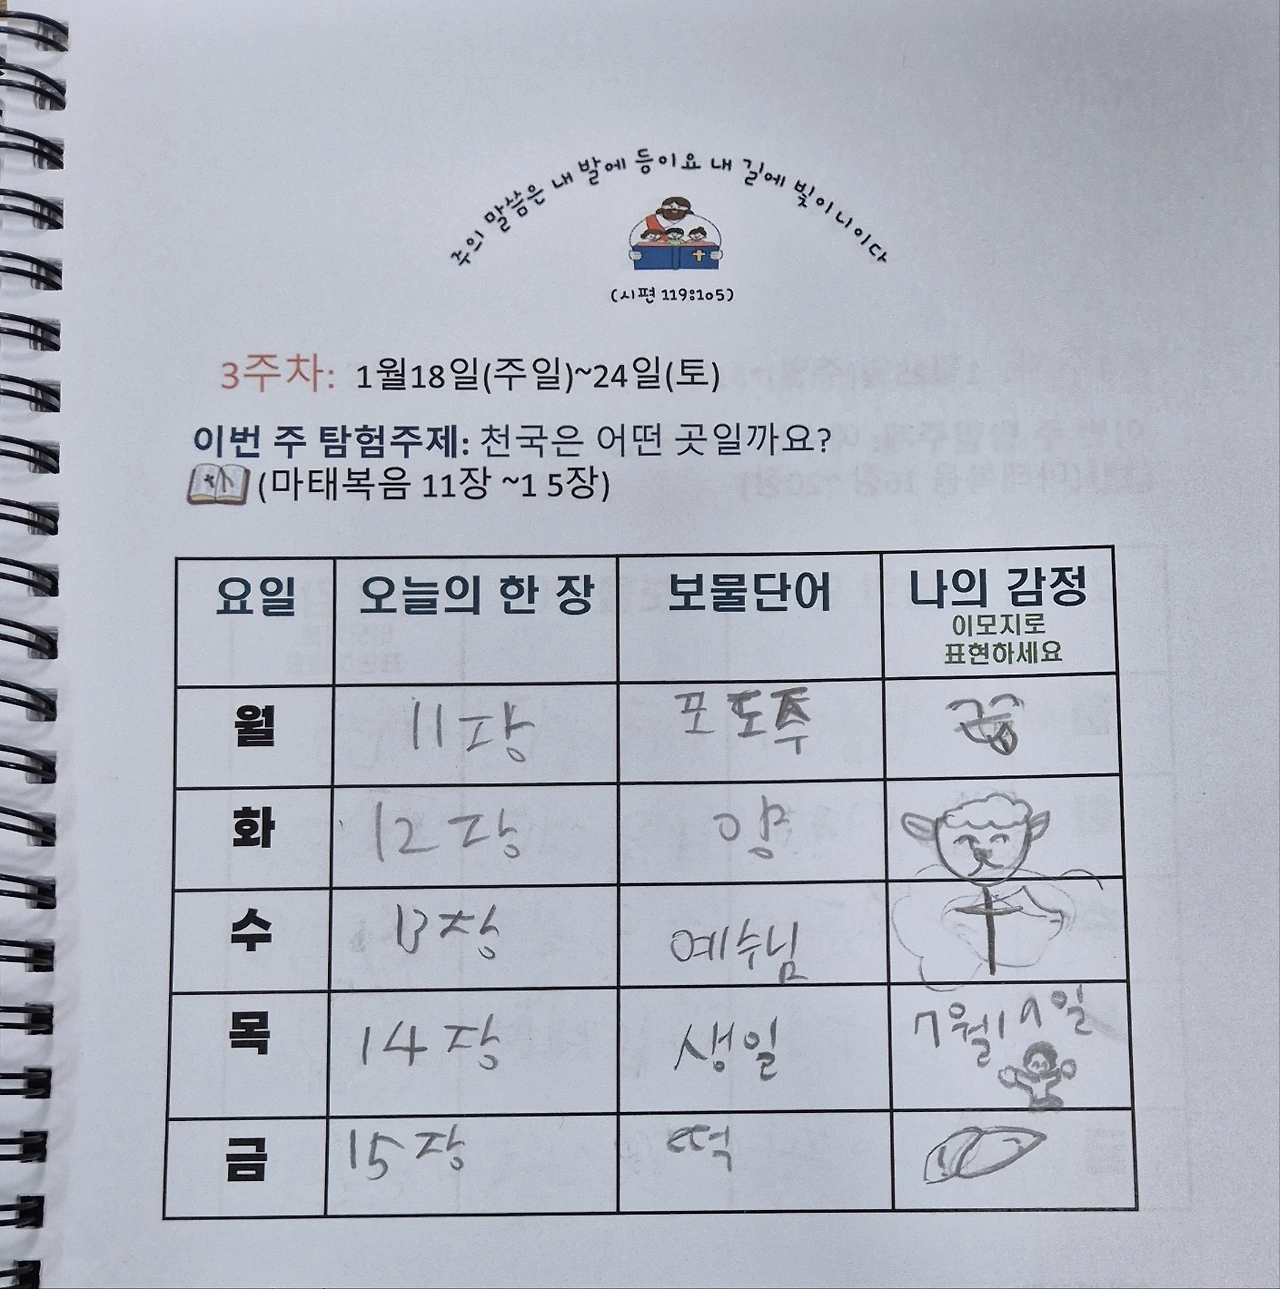 주의 말씀은 내 발에 등이요 내 길에 빛이니이다
(시편 119:105)
3주차: 1월18일(주일)~24일(토)
이번 주 탐험주제: 천국은 어떤 곳일까요?
(마태복음 11장 ~1 5장)
요일 오늘의 한 장 보물단어 나의 감정
이모지로
표현하세요
월 11장 포도주
화 12장 양
수 13장 예수님
목 14장 생일 7월1일
금 15장 떡